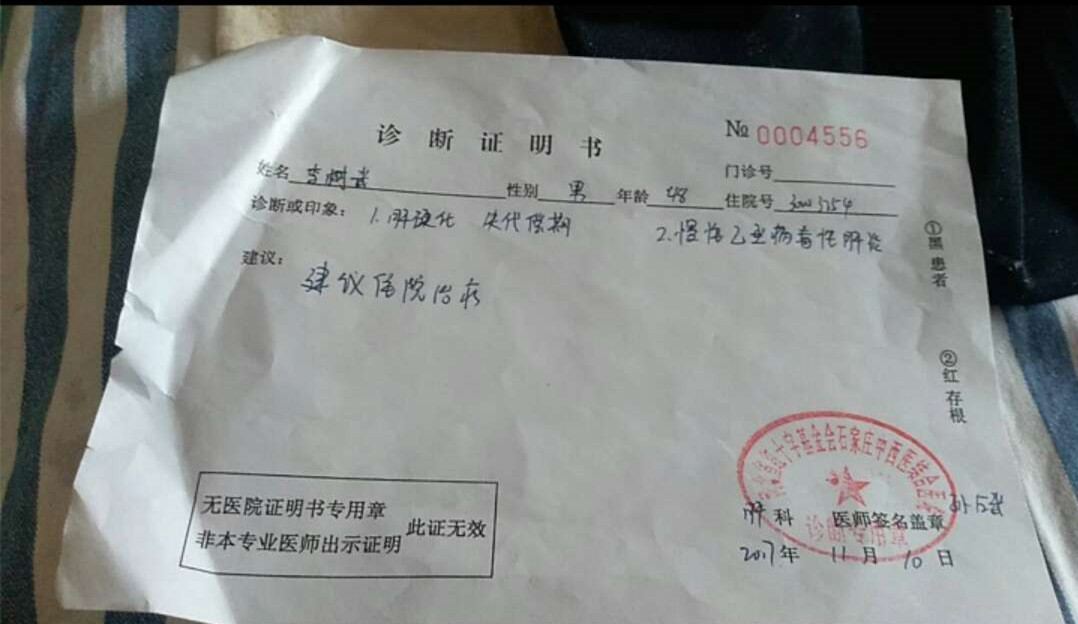 诊断证明书
№ 0004556
门诊号
姓名 李树武 性别 男 年龄 48 住院号
诊断或印象： 1.肝硬化 失代偿期 2.慢性乙型病毒性肝炎
建议：
建议住院治疗
①黑 患者
②红 存根
河北省红十字基金会石家庄中西医结合医院
诊断专用章
无医院证明书专用章
非本专业医师出示证明 此证无效
肝科 医师签名盖章
2017年 11月 10日